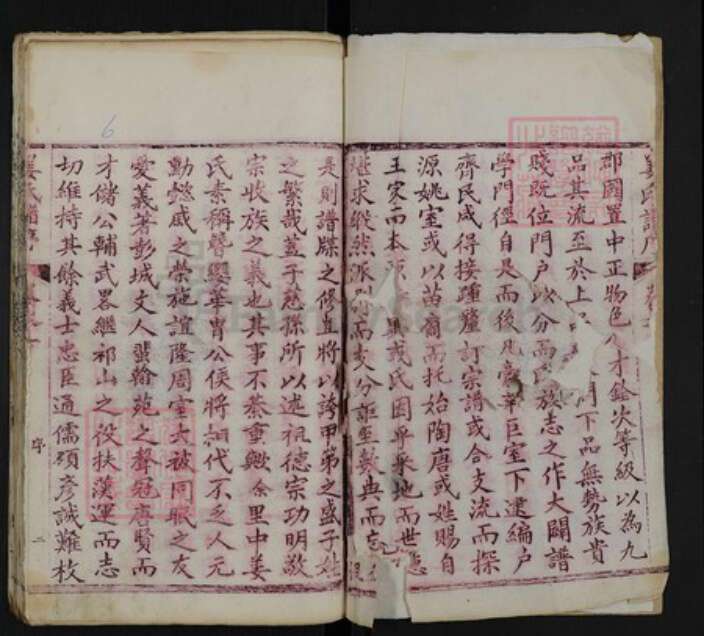 郡國置中正物色人才銓次等級以為九
品其流至於上品 門下品無勢族貴
賤既位門户以分而氏族志之作大闢譜
學門徑自是而後凡豪華巨室下逮編户
齊民咸得接踵釐訂宗譜或合支流而探
源姚室或以苗裔而托始陶唐或姓賜自
王家而本 異或氏因 采地而世
繼求縱然派別而支分詎至數典而忘
是則譜牒之修直將以誇甲第之盛子姓
之繁哉蓋子慈孫所以述祖德宗功明敬
宗收族之義也其事不綦重歟余里中姜
氏素稱簪纓華冑公侯將相代不乏人元
勳懿戚之榮施誼隆周室大被同眠之友
愛義著彭城文人蜚翰苑之聲冠唐賢而
才儲公輔武畧繼祁山之役扶漢運而志
切維持其餘義士忠臣通儒碩彥誠難枚
姜氏譜序
序
二
6